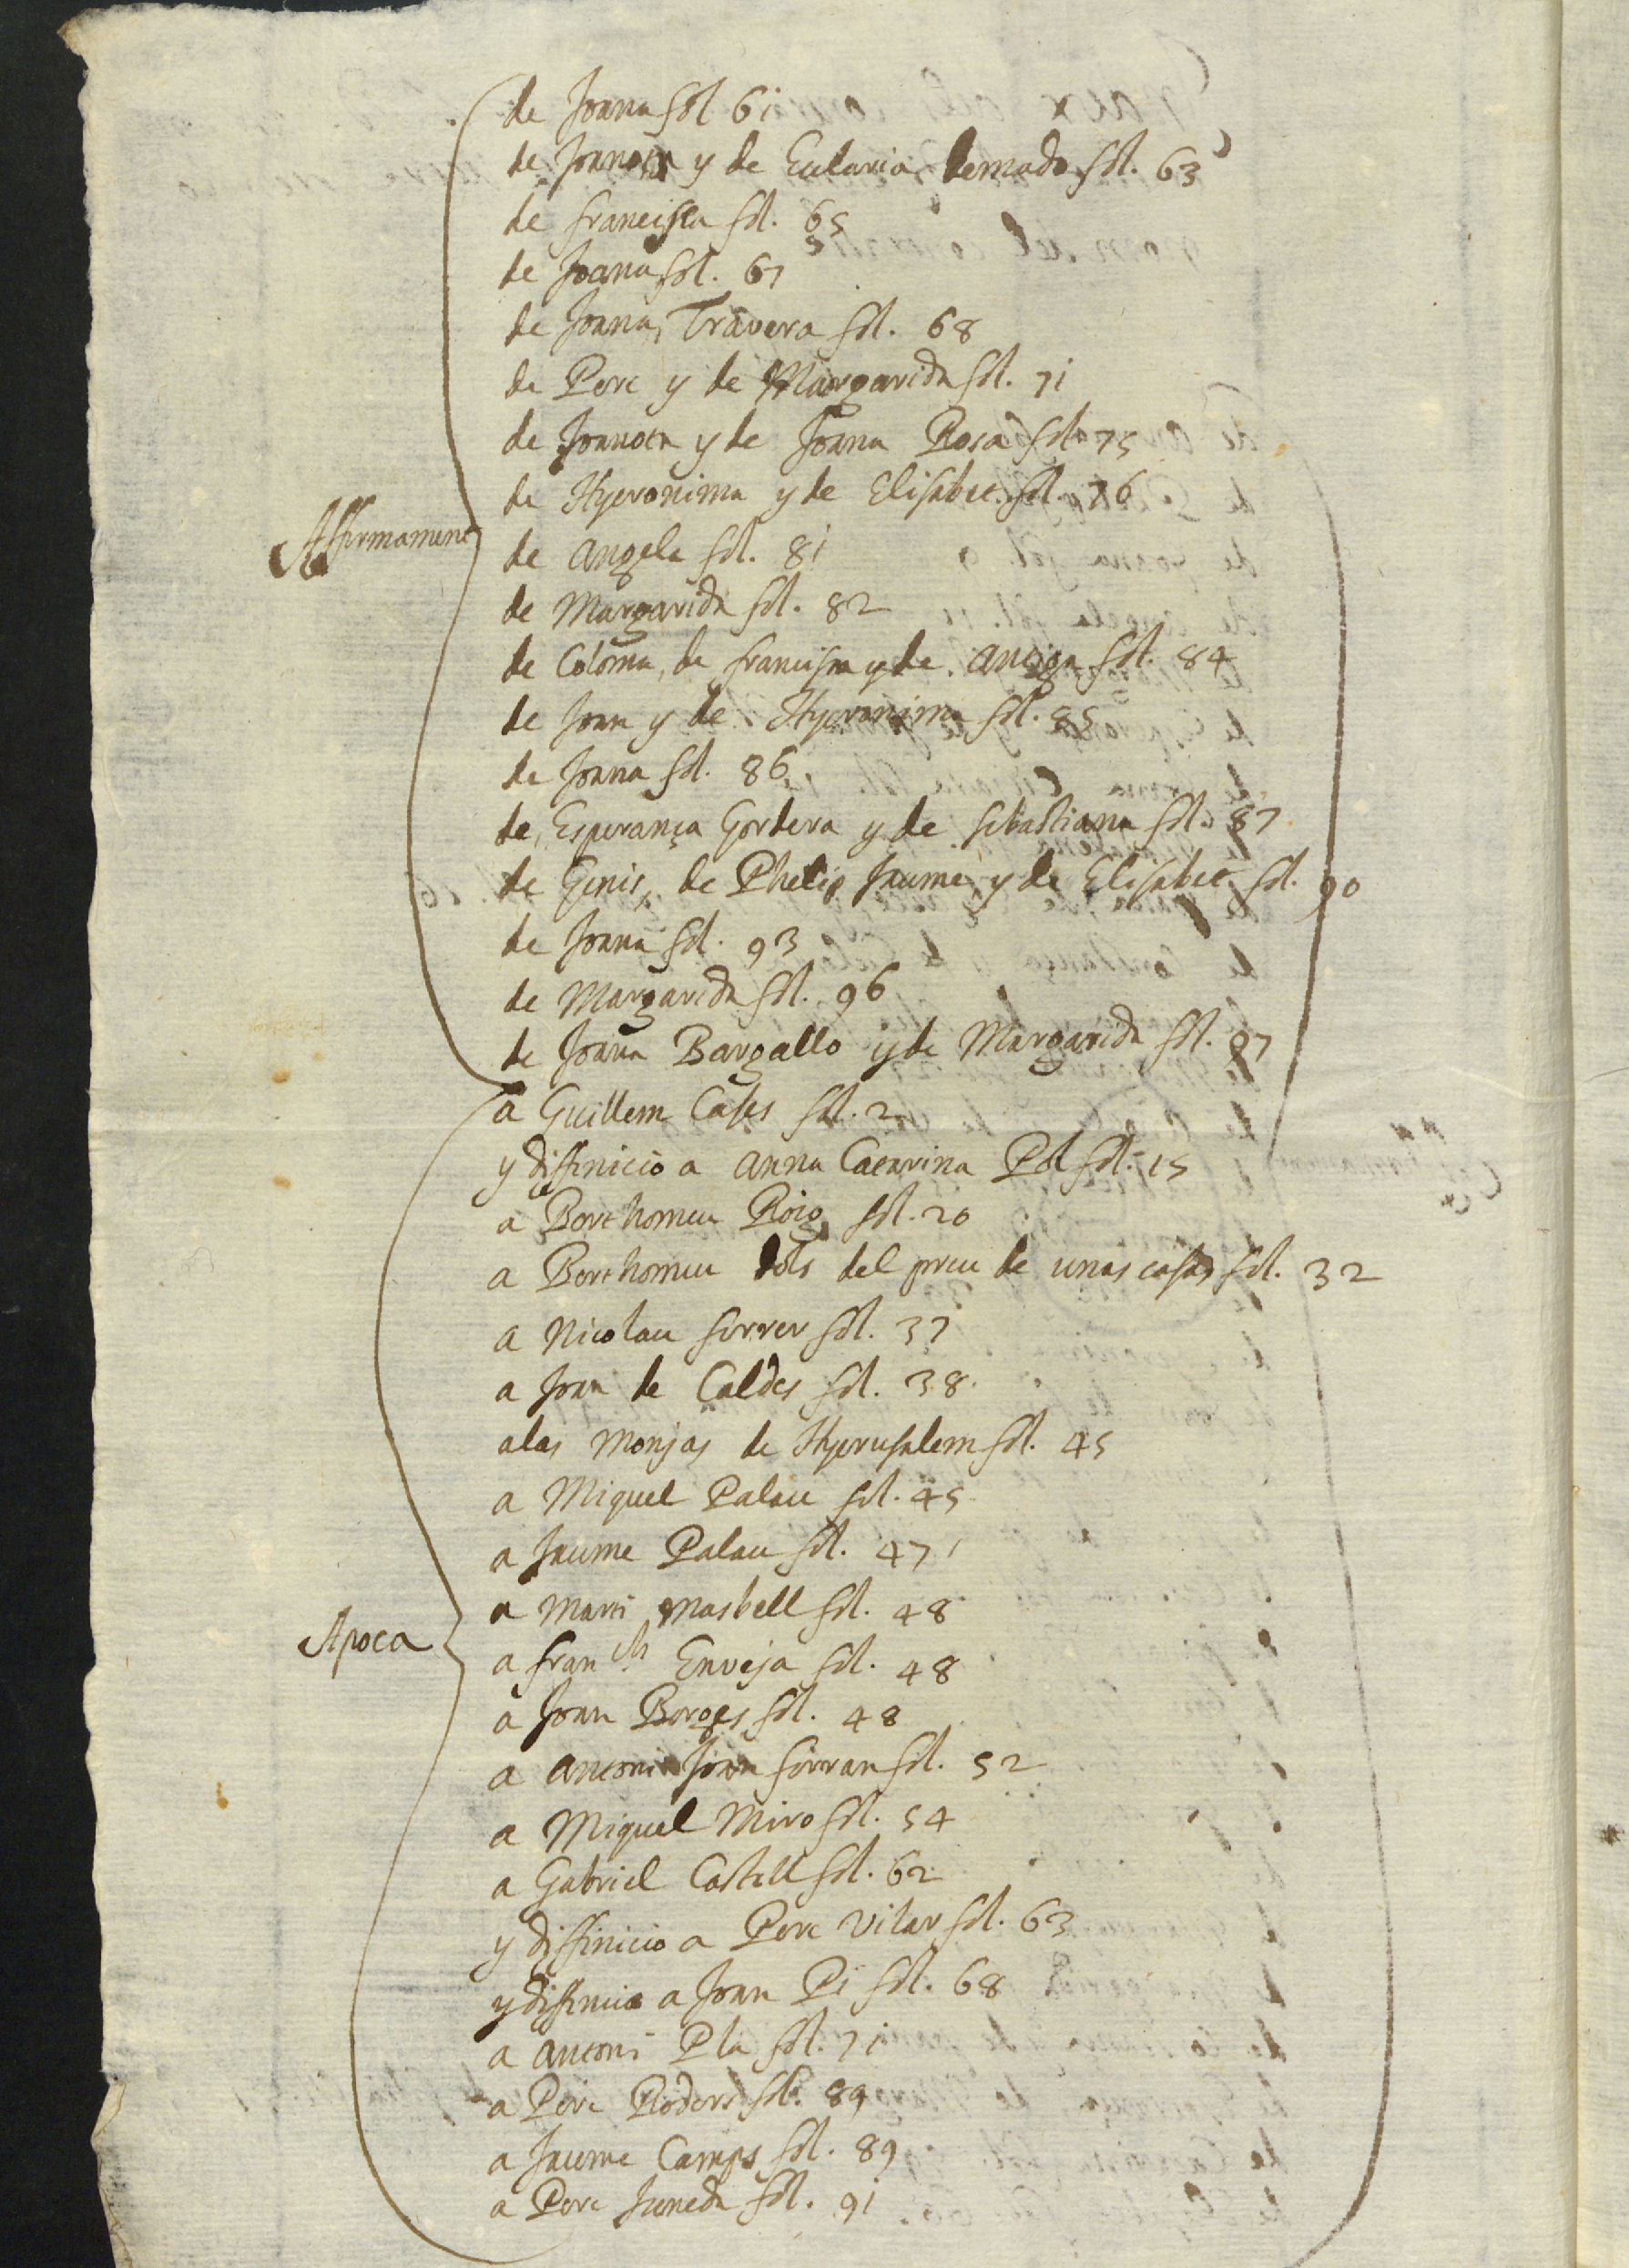 de Joana fol 61
de Joanota y de Eularia fol. 63
de francisca fol. 65
de Joana fol. 67
de Joana Travera fol. 68
de Pere y de Margarida fol. 71
de Joanota y de Joana Rosa fol. 75
de Hyeronima y de Elisabet fol. 76
Affirmament
de Angela fol. 81
de Margarida fol. 82
de Coloma, de francisca y de Antiga fol. 84
de Joan y de Hyeronima fol. 85
de Joana fol. 86
de Esperança Gordera y de sebastiana fol. 87
de Genis, de Phelip Jaume y de Elisabet fol. 90
de Joana fol. 93
de Margarida fol. 96
de Joana Bargallo y de Margarida fol. 97
a Guillem Cases fol. 2
y diffinicio a Anna Catarina Pol fol. 15
a Berthomeu Roig fol. 20
a Berthomeu Bols del preu de unas casas fol. 32
a Nicolau ferrer fol. 37
a Joan de Caldes fol. 38
a las Monjas de Hyerusalem fol. 45
a Miquel Palau fol. 45
a Jaume Palau fol. 47
a Marti Masbell fol. 48
Apoca
a fran.ch Enveja fol. 48
a Joan Borges fol. 48
a Antoni Joan ferran fol. 52
a Miquel Miro fol. 54
a Gabriel Castell fol. 62
y diffinicio a Pere Vilar fol. 63
y diffinicio a Joan Pi fol. 68
a Antoni Pla fol. 71
a Pere fol. 89
a Jaume Camps fol. 89
a Pere Juneda fol. 91